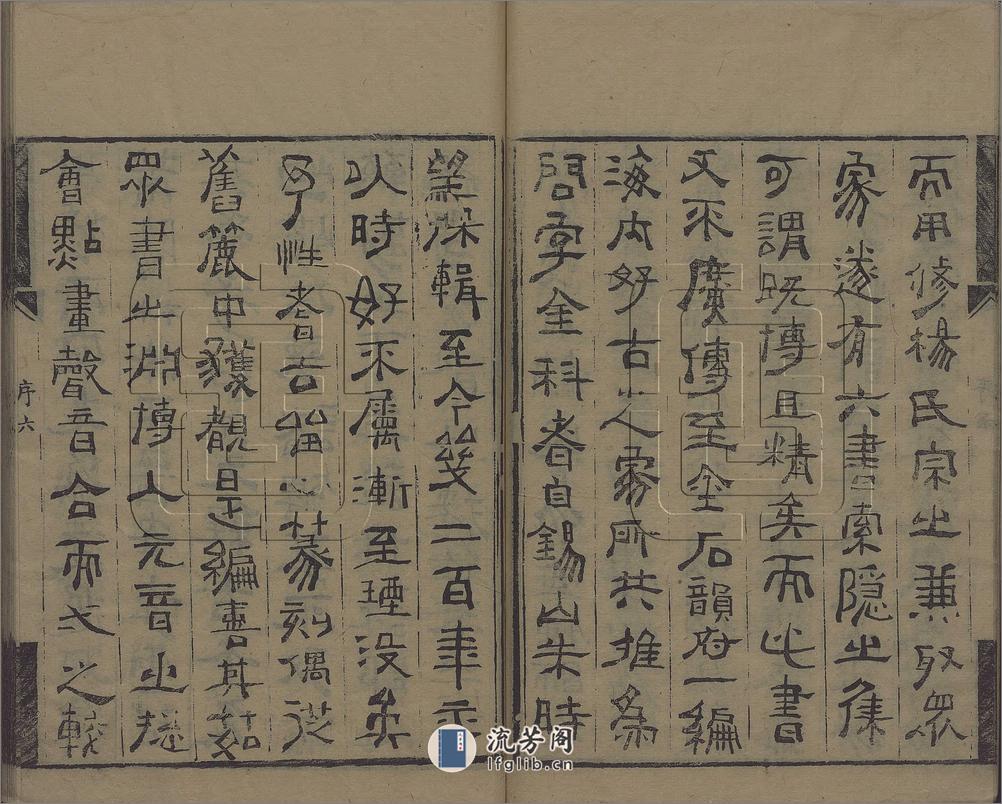 而用修楊氏宗之兼取眾
家遂有六書索隱之集
可謂既博且精矣而此書
又不廣傳至金石韻府一編
海內好古之家所共推為
問字金科者自錫山朱時
望採輯至今幾二百年
以時好不屬漸至堙沒矣
予性耆古留心篆刻偶從
舊簏中獲覩是編喜其茹
眾書之淵博入元音之摠
會點畫聲音合而弌之較
序六
流芳阁
lfglib.cn